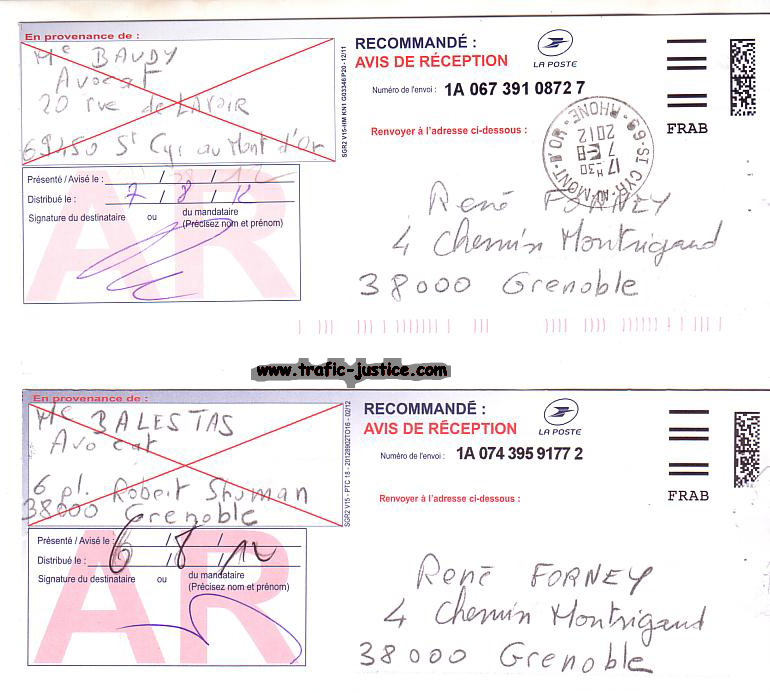 En provenance de :
Me BAUDY
Avocat
20 rue de LAVOIR
69450 St Cyr au Mont d'Or
SGR2 V15-HM KN1 G03346P20 - 12/11
Présenté / Avisé le : / /12
Distribué le : 7 / 8 / 12
Signature du destinataire ou du mandataire
(Précisez nom et prénom)
AR
RECOMMANDÉ :
AVIS DE RÉCEPTION
LA POSTE
Numéro de l'envoi : 1A 067 391 0872 7
Renvoyer à l'adresse ci-dessous :
FRAB
69-ST CYR-AU-MONT-D'OR - RHONE
17 H30
7 - 8
2012
René FORNEY
4 Chemin Montrigaud
38000 Grenoble
www.trafic-justice.com
En provenance de :
Me BALESTAS
Avocat
6 pl. Robert Shuman
38000 Grenoble
SGR2 V15 - PTC 18 - 201289027D16 - 02/12
Présenté / Avisé le : / /
Distribué le : 6 / 8 / 12
Signature du destinataire ou du mandataire
(Précisez nom et prénom)
AR
RECOMMANDÉ :
AVIS DE RÉCEPTION
LA POSTE
Numéro de l'envoi : 1A 074 395 9177 2
Renvoyer à l'adresse ci-dessous :
FRAB
René FORNEY
4 Chemin Montrigaud
38000 Grenoble